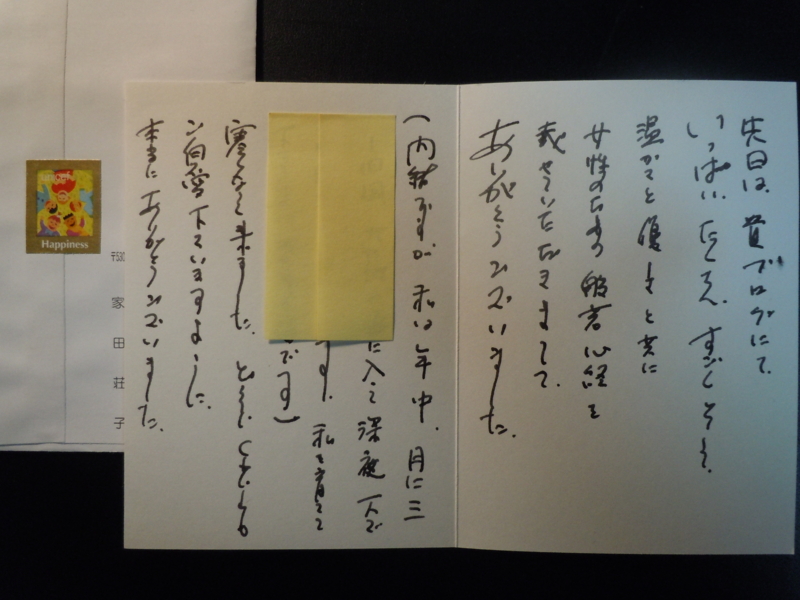 先日は、貴ブログにて、
いっぱい、たくさん、すごく、そして、
温かさと優しさと共に
女性のための般若心経を
載せていただきまして、
ありがとうございました。
(内緒ですが、私は年中、月に三
に入って深夜一人で
す。私を育てて
です)
寒くなって来ました。どうぞくれぐれも
ご自愛下さいますように。
本当にありがとうございました。
Happiness
家田荘子